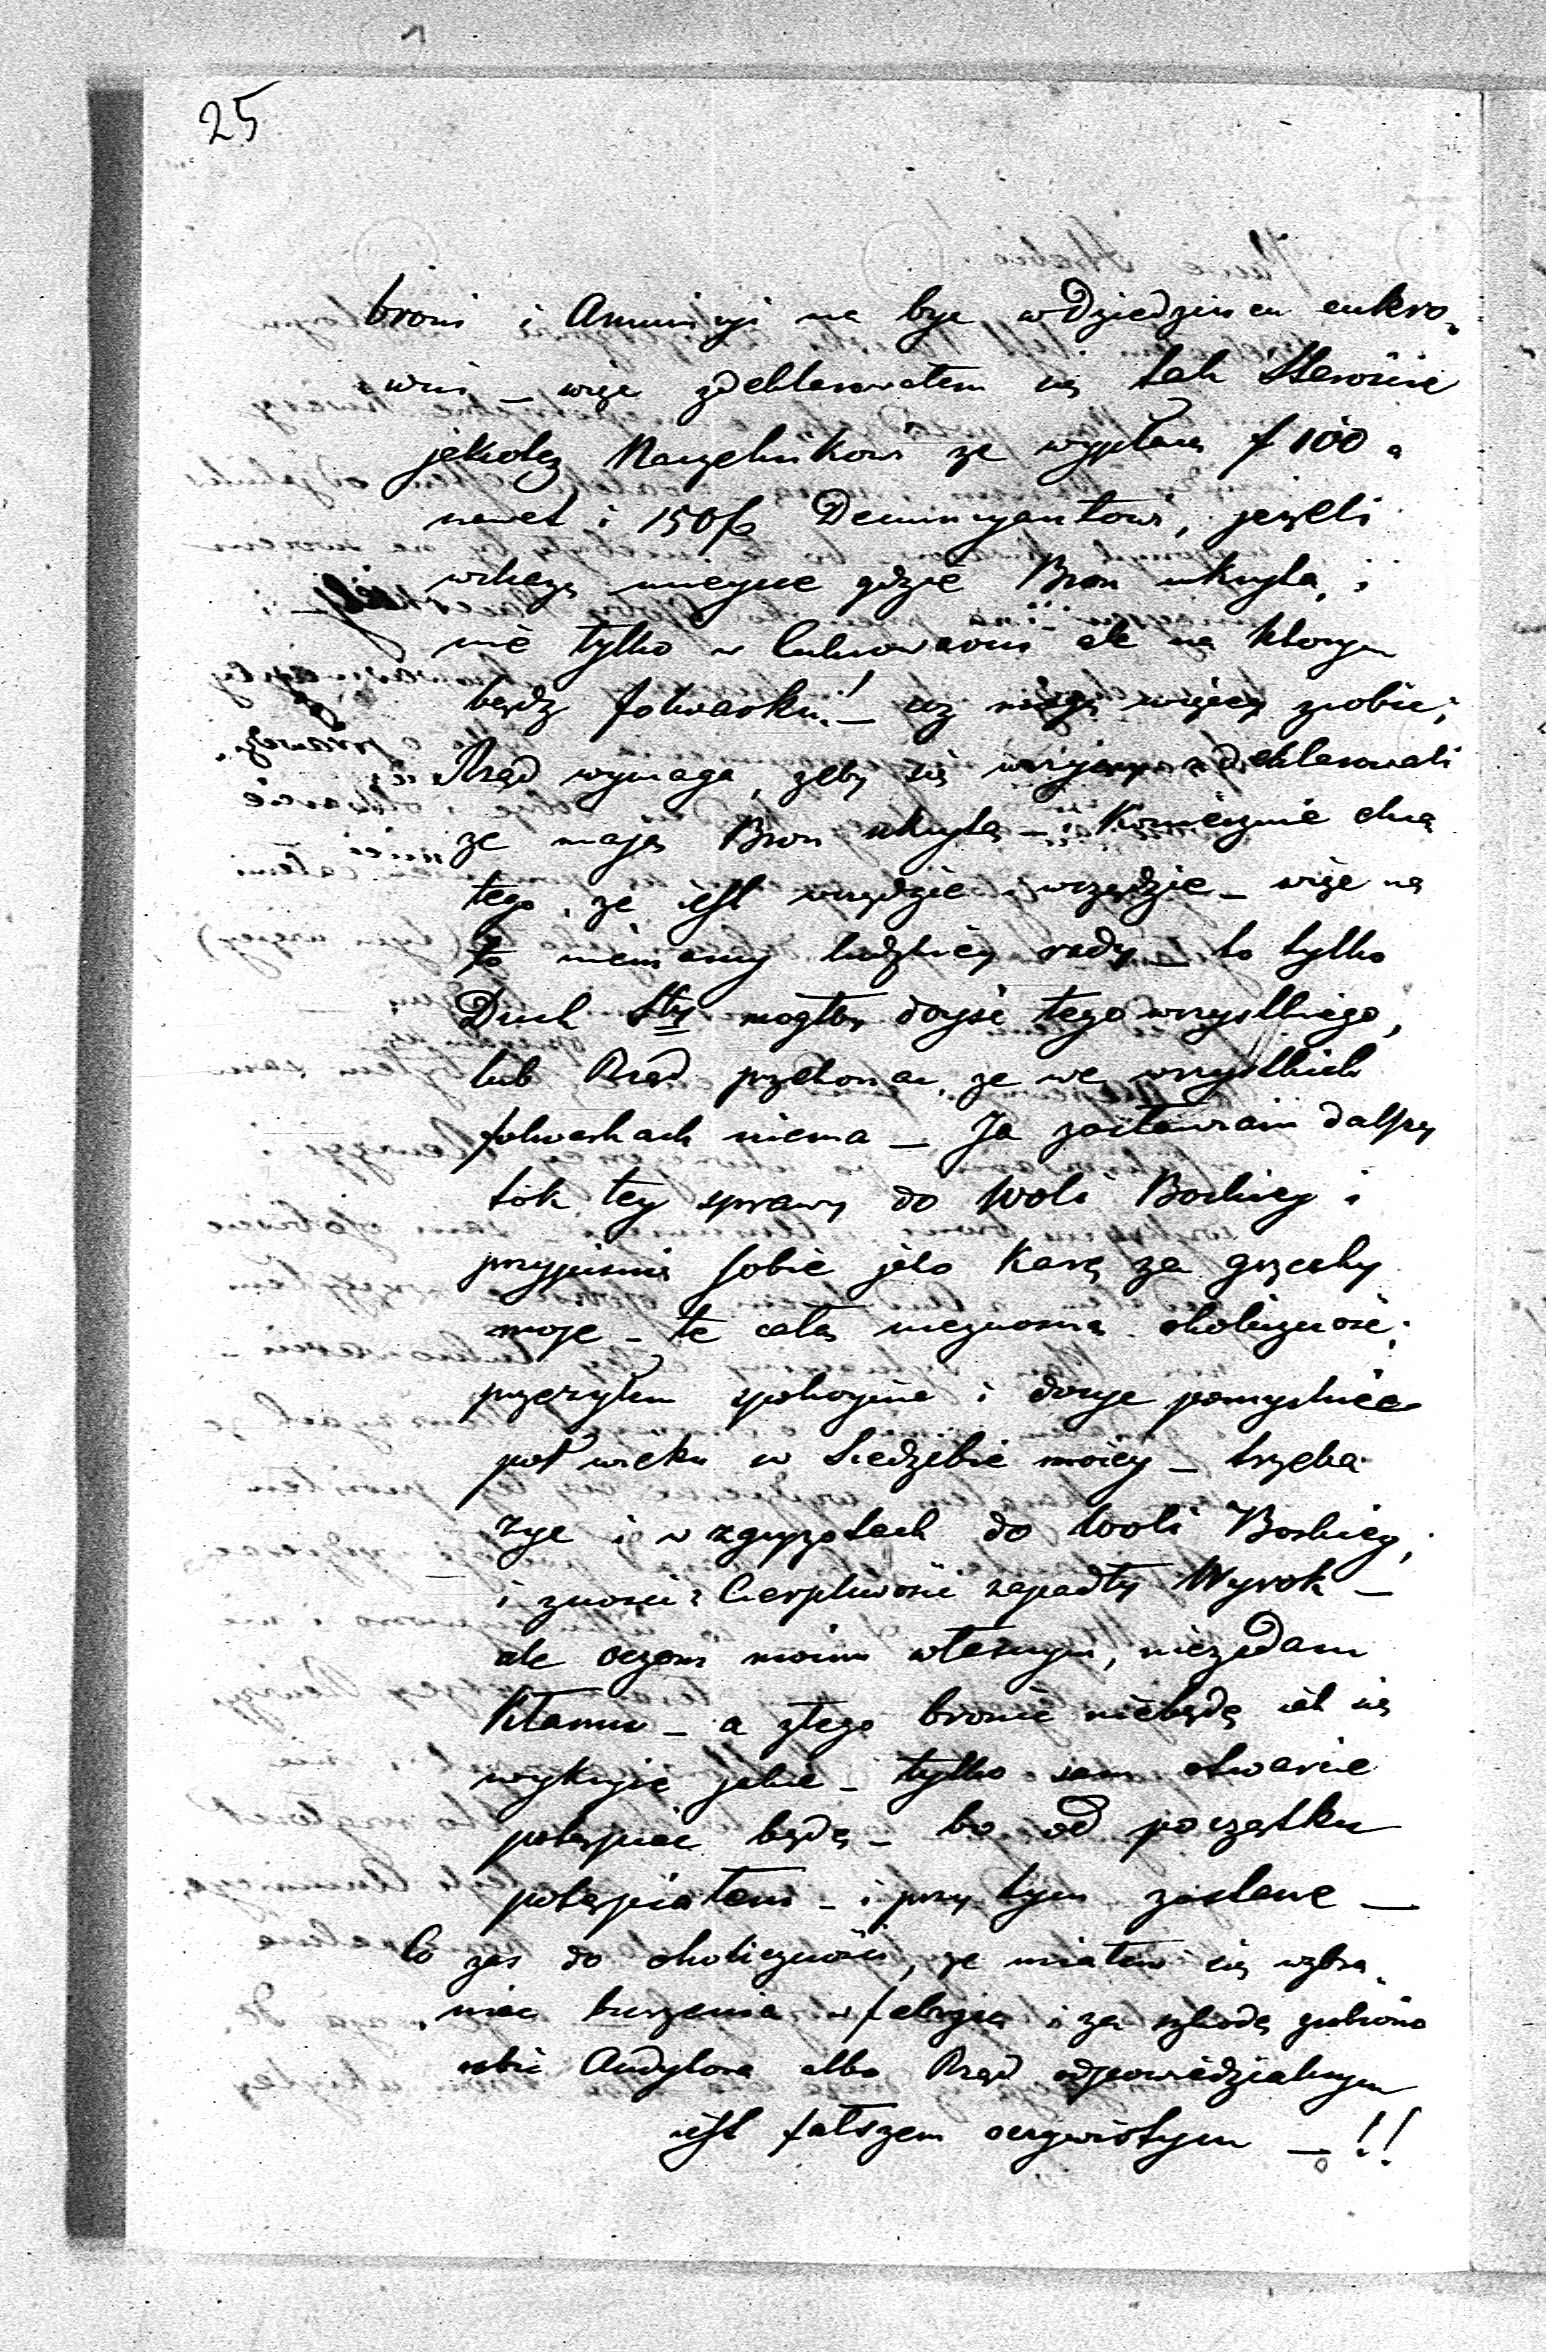 25
broni i Amunicyi ma byc w Dziedzincu cukro-
wni – więc zdeklarowałem się tak Staroście
jakotez Naczelnikowi ze wypłacę f 100 a
nawet i 150 f Denuncyantowi, jezeli
wskazą mieysce gdzie Bron ukryta, i
nie tylko w Cukrowarni ale na ktorym
bądz folwarku! – coz mogę więcey zrobic;
Rząd wymaga, zeby się wszyscy zdeklarowali
ze mają Bron ukrytą – Koniecznie chcą
tego, ze iest wszędzie i wszędzie – więc na
to niemamy ludzkiey rady – to tylko
Duch Sty mogłby doyść tego wszystkiego,
lub Rząd przekonac, ze we wszystkich
folwarkach niema – Ja zostawiam dalszy
tok tey sprawy do Woli Boskiey i
przyjmuię sobie jako Karę za grzechy
moje – te całą nieznosną okoliczność;
przezyłem spokoynie i dosyc pomyslnie
poł wieku w Siedzibie moiey – trzeba
zyc i w zgryzotach do Woli Boskiey,
i znosic z Cierpliwości zapadły Wyrok –
ale oczom moim własnym, niezadam
Kłamu – a złego bronić niebędę iak się
wykryie jakie – tylko sam otwarcie
potępiac będę – bo od początku
potępiałem – i przy tym zostanę –
Co zas do okoliczności, ze miałem się wzbra-
niac burzenia w fabryce i za szkodę zrobioną
robic Audytora albo Rząd odpowiedzialnym
iest fałszem oczywistym – !!